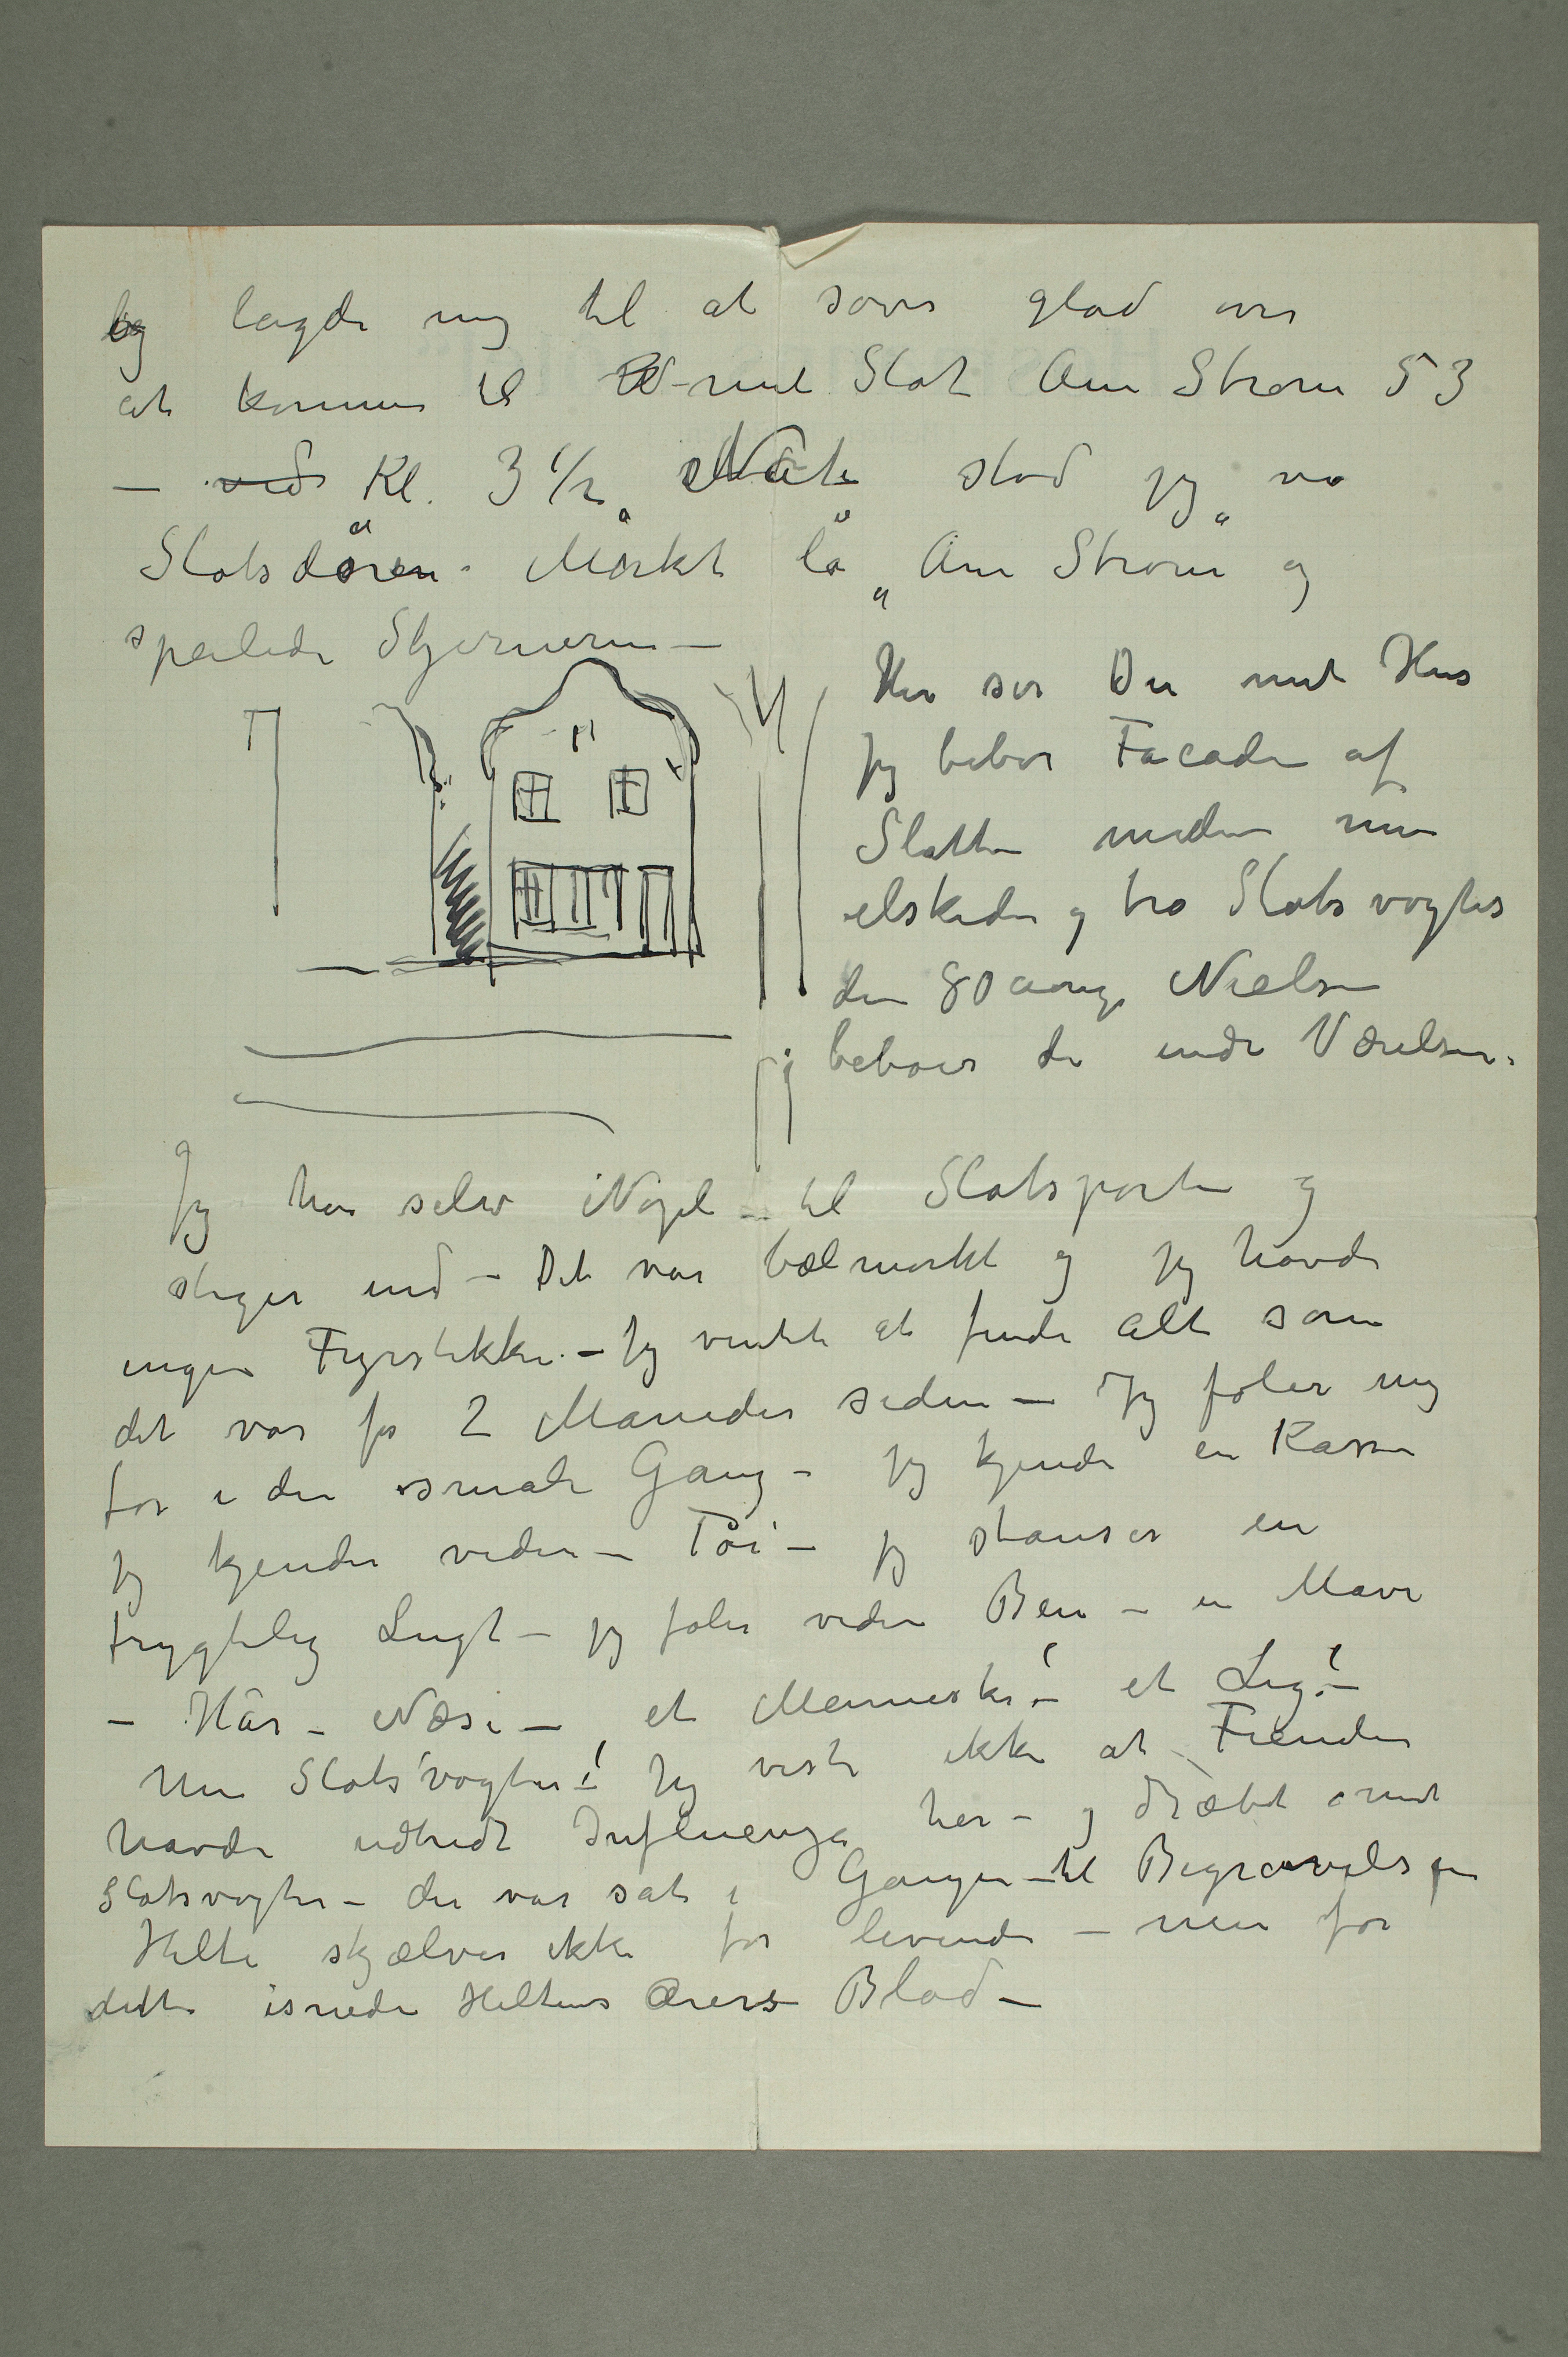 og lagde mig til at sove glad over
at komme til mit Slot Am Strom 53
– ved Kl. 3 1/2 Nat stod jeg ved
Slotsdøren. Mørkt lå „Am Strom“ og
speilede Stjernerne –
Her ser Du mit Hus
Jeg bebor Facaden af
Slottet medens min
elskede og tro Slotsvogter
den 80 aarige Nielsen
beboer de indre Værelser.
Jeg har selv Nøgel til Slotsporten og
stiger ind – Det var bælmørkt og jeg havde
ingen Fyrstikker. – Jeg ventet at finde alt som
det var for 2 Maaneder siden – Jeg føler mig
for i den smale Gang – jeg kjender en Kasse
jeg kjender videre – Tøi – jeg stanser en
frygtelig Lugt – jeg føler videre Ben – en Mave
– Hår – Næse – et Menneske! – et Lig! –
Min Slotsvogter! – Jeg viste ikke at Fienden
havde udbredt Influenza her – og dræbt mit
Slotsvogter – der var sat i Gangen til Begravelsen
Helte skjælver ikke for levende – men for
dette isnede Heltens Årers Blod –